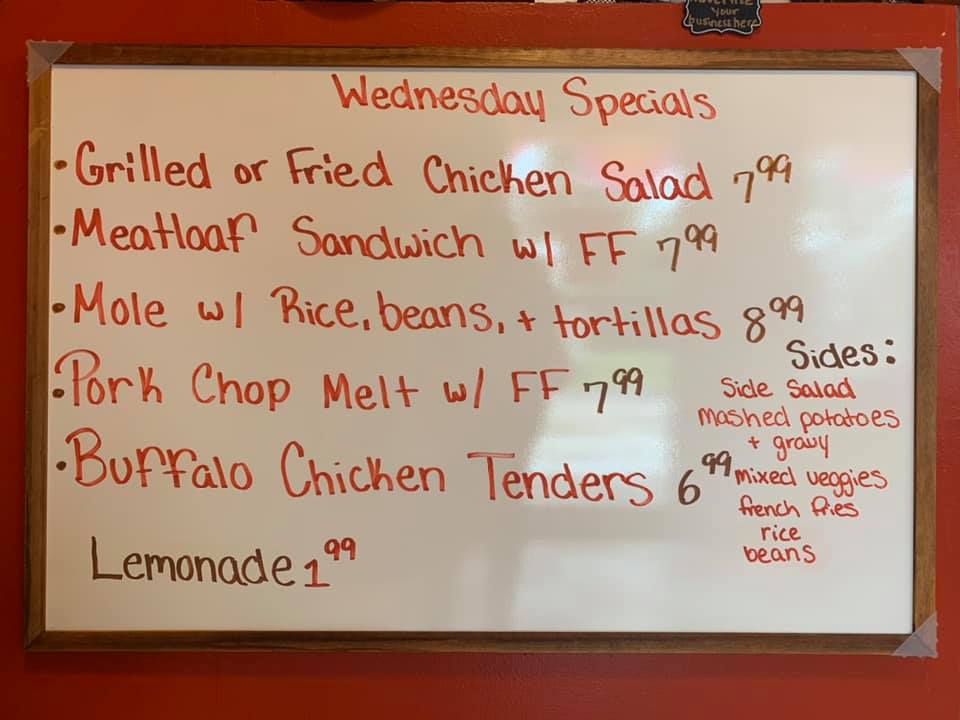 your
business here
Wednesday Specials
• Grilled or Fried Chicken Salad 7.99
• Meatloaf Sandwich w/ FF 7.99
• Mole w/ Rice, beans, + tortillas 8.99
• Pork Chop Melt w/ FF 7.99
• Buffalo Chicken Tenders 6.99
Lemonade 1.99
Sides:
Side Salad
Mashed potatoes
+ gravy
mixed veggies
french fries
rice
beans